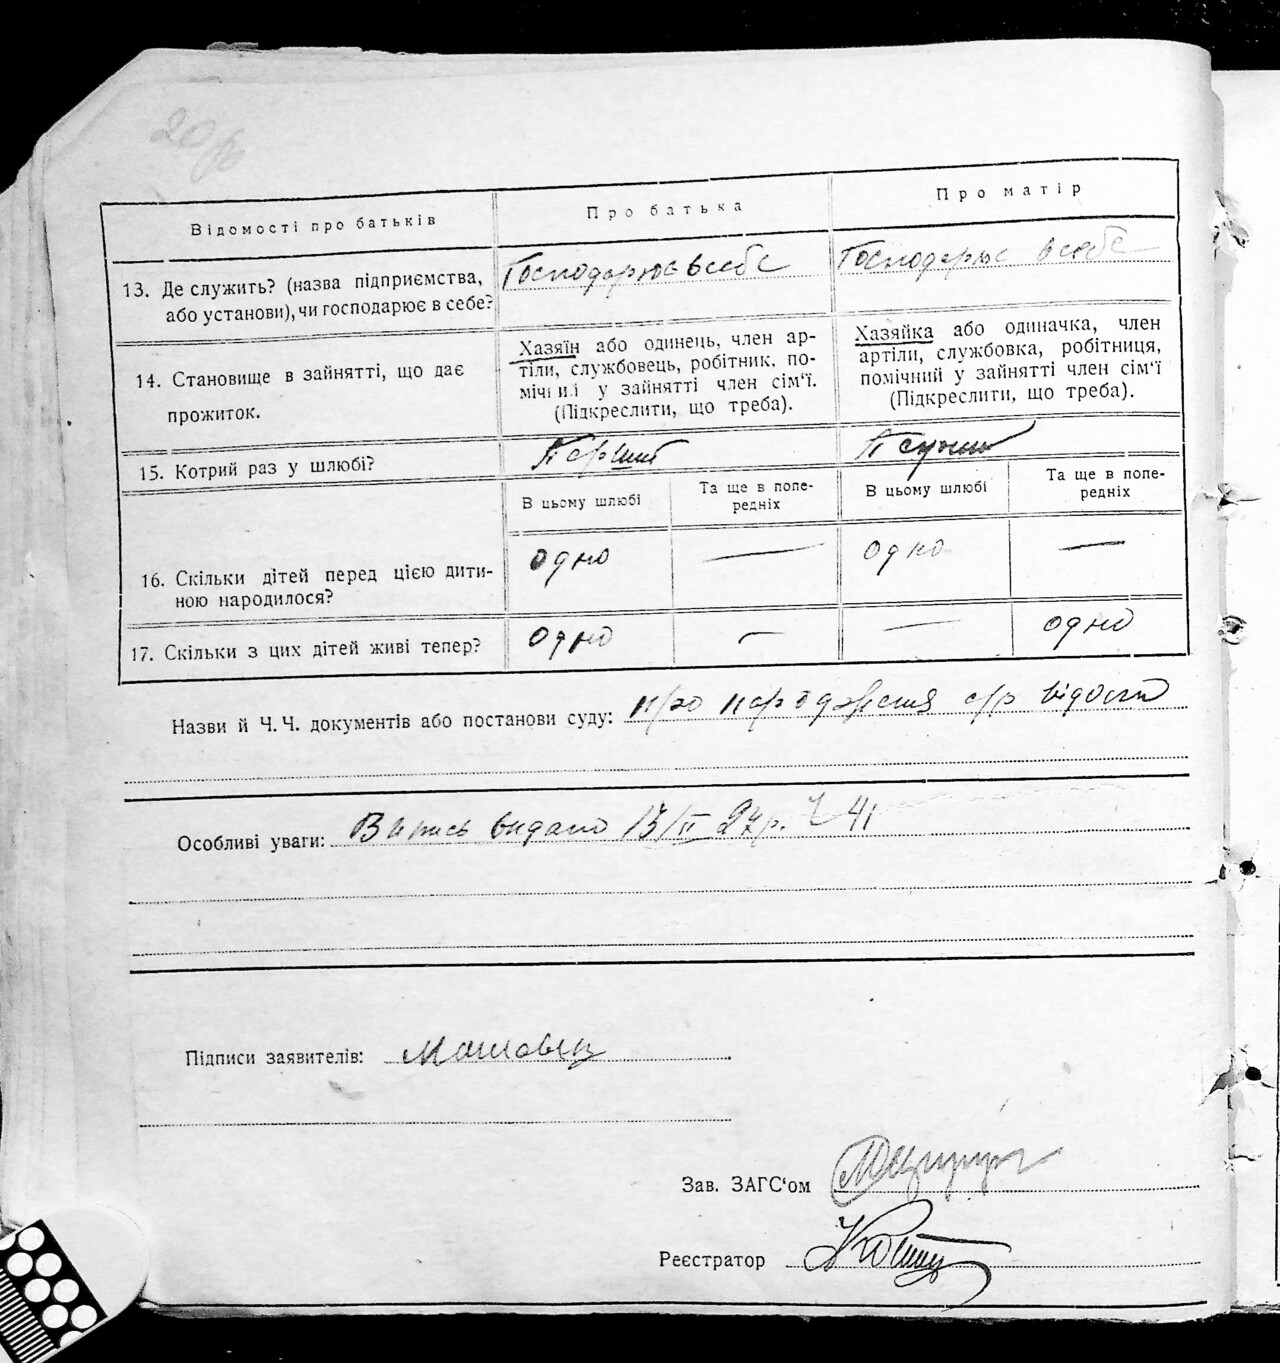 Відомості про батьків
Про батька
Про матір
13. Де служить? (назва підприємства,
або установи), чи господарює в себе?
Господарює в себе
Господарює в себе
14. Становище в зайнятті, що дає
прожиток.
Хазяїн або одинець, член ар-
тіли, службовець, робітник, по-
мічний у зайнятті член сім'ї.
(Підкреслити, що треба).
Хазяйка або одиначка, член
артіли, службовка, робітниця,
помічний у зайнятті член сім'ї
(Підкреслити, що треба).
15. Котрий раз у шлюбі?
Перший
В цьому шлюбі
Та ще в попе-
редніх
В цьому шлюбі
Та ще в попе-
редніх
16. Скільки дітей перед цією дити-
ною народилося?
одно
—
одно
—
17. Скільки з цих дітей живі тепер?
одно
—
—
одно
Назви й Ч. Ч. документів або постанови суду: про народження с/р
Особливі уваги: Випись видано 15/II 27р. Ч 41
Підписи заявителів:
Зав. ЗАГС'ом
Реєстратор